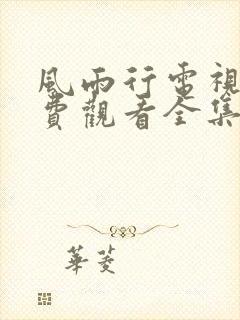 風雨行電視
費觀看全集
華菱